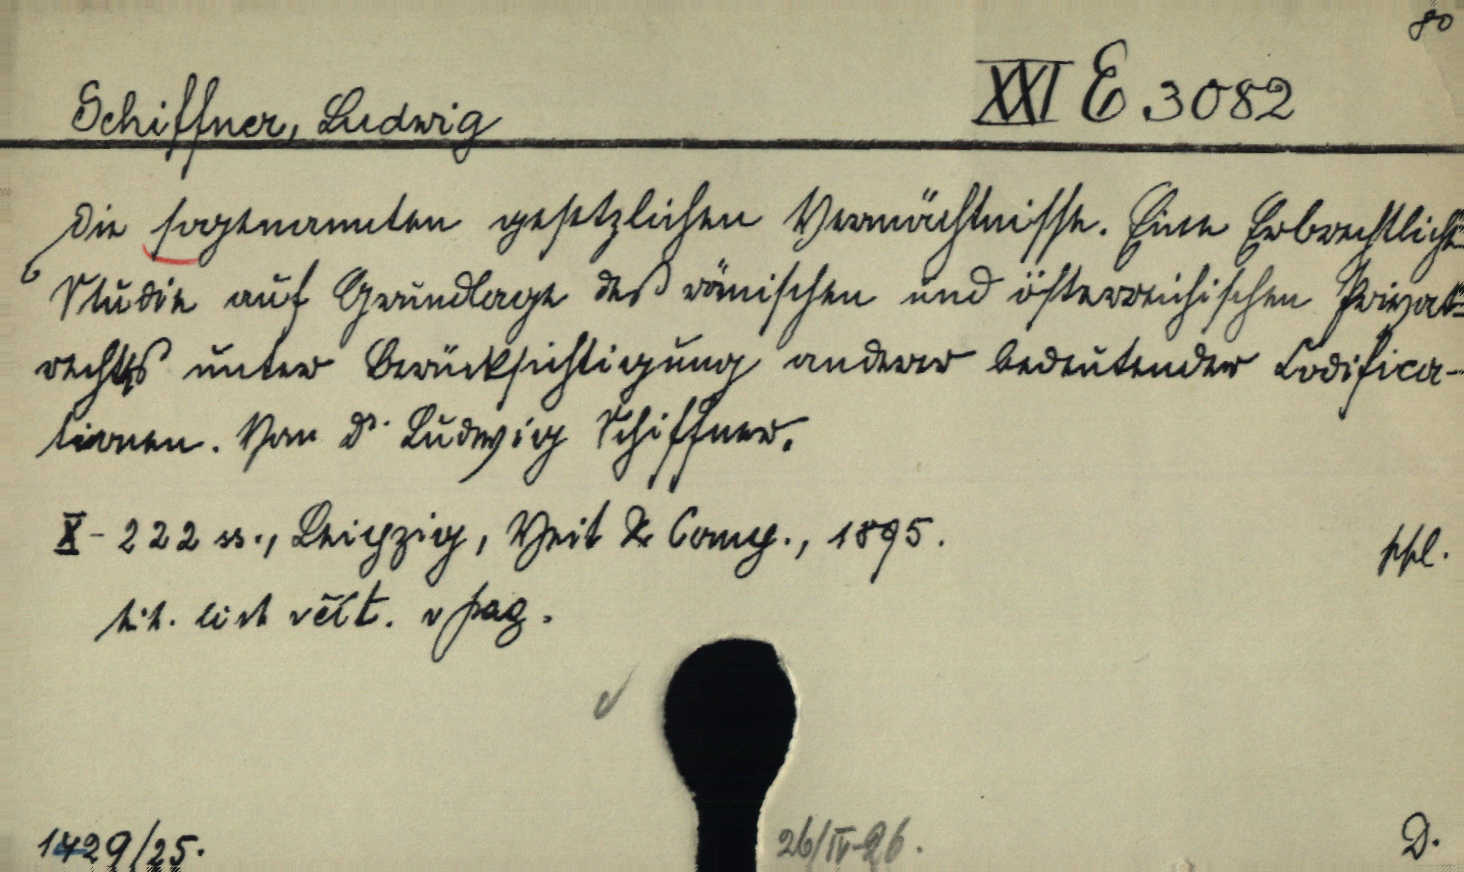 80
Schiffner, Ludwig
XXI E 3082
Die sogenannten gesetzlichen Vermächtnisse. Eine Erbrechtliche
Studie auf Grundlage deß römischen und österreichischen Privat-
rechtes unter Berücksichtigung anderer bedeutender Codifica-
tionen. Von Dr. Ludwig Schiffner.
X - 222 ss., Leipzig, Veit & Comp., 1895.
ppl.
tit. list v pag.
1429/25.
26/IV-26.
D.